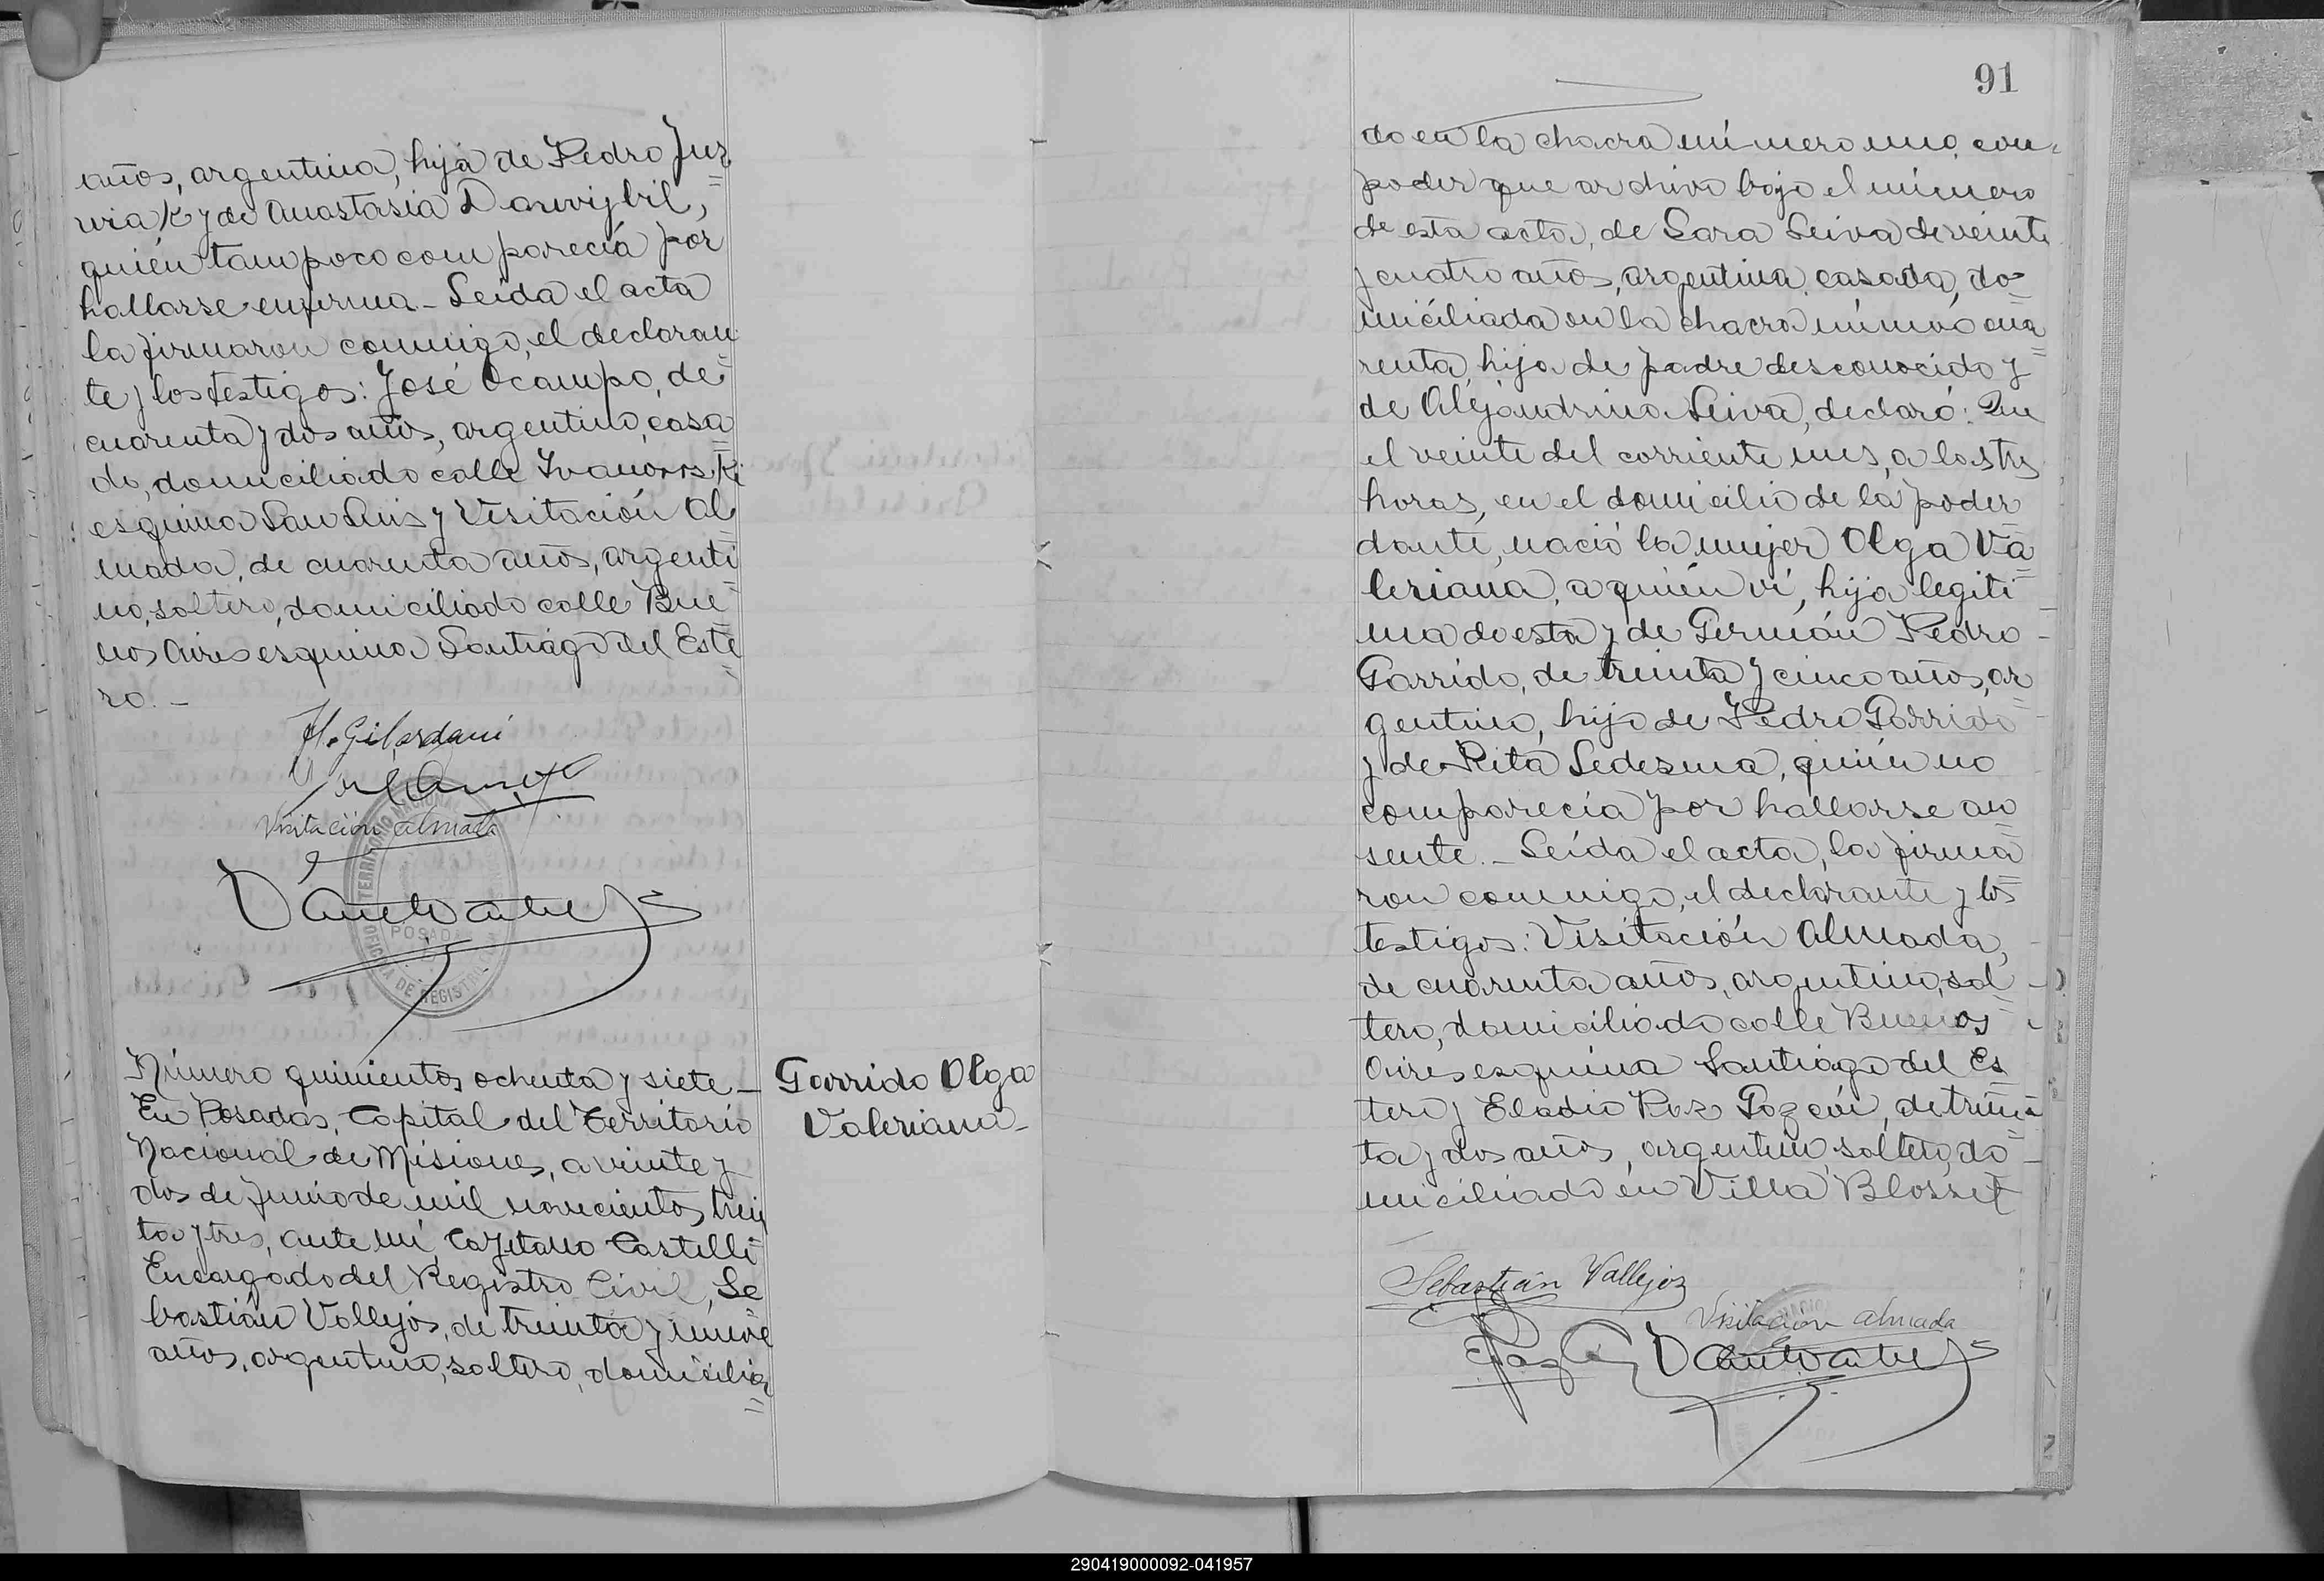 años, argentina, hija de Pedro Juz
wiak y de Anastasia Darwijbil,
quién tampoco comparecía por
hallarse enferma.- Leída el acta
la firmaron conmigo, el declaran
te y los testigos: José Ocampo, de
cuarenta y dos años, argentino, casa
do, domiciliado calle Ivanowski
esquina San Luis y Visitación Al
mada, de cuarenta años, argenti
no, soltero, domiciliado calle Bue
nos Aires esquina Santiago del Este
ro.-
H. Gilardani
Visitación Almada
TERRITORIO NACIONAL
POSADAS
OFICINA DE REGISTRO
Número quinientos ochenta y siete -
En Posadas, Capital del Territorio
Nacional de Misiones, a veinte y
dos de junio de mil novecientos trein
ta y tres, ante mí, Cayetano Castelli
Encargado del Registro Civil, Se
bastián Vallejos, de treinta y nueve
años, argentino, soltero, domicilia
Garrido Olga
Valeriana-
91
do en la chacra número uno, con
poder que archivo bajo el número
de esta acta, de Sara Leiva de veinte
y cuatro años, argentina, casada, do
miciliada en la chacra número cua
renta, hija de padre desconocido y
de Alejandrina Leiva, declaró: Que
el veinte del corriente mes, a las tres
horas, en el domicilio de la poder
dante, nació la mujer Olga Va
leriana, a quién ví, hija legíti
ma de esta y de Germán Pedro
Garrido, de treinta y cinco años, ar
gentino, hijo de Pedro Garrido
y de Rita Ledesma, quién no
comparecía por hallarse au
sente.- Leída el acta, la firma
ron conmigo, el declarante y los
testigos: Visitación Almada,
de cuarenta años, argentino, sol
tero, domiciliado calle Buenos
Aires esquina Santiago del Es
tero y Eladio Roz Pozcón, de trein
ta y dos años, argentino, soltero, do
miciliado en Villa Blosset
Sebastián Vallejos
Visitación Almada
290419000092-041957